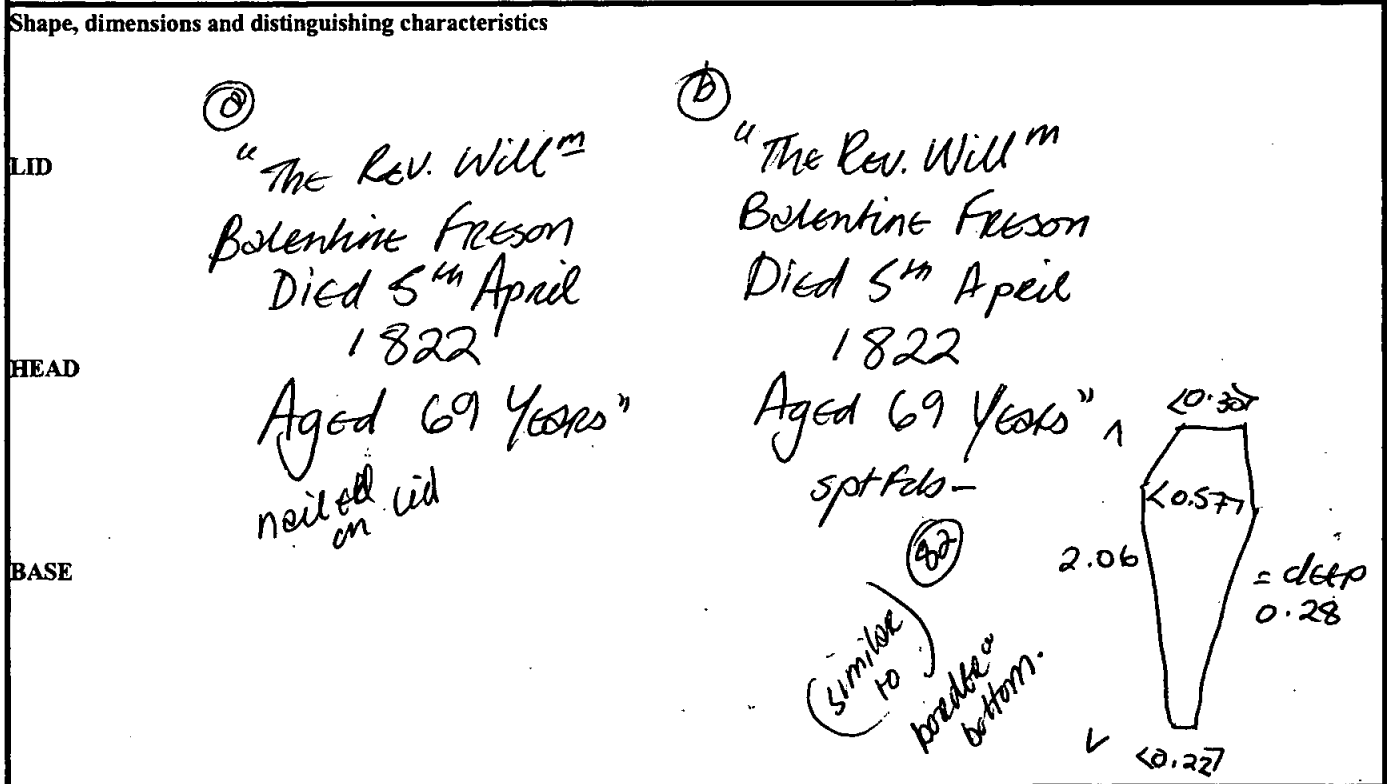 Shape, dimensions and distinguishing characteristics
LID
HEAD
BASE
a
"The Rev. Will m
Balentine Freson
Died 5th April
1822
Aged 69 Years"
nailed
on lid
b
"The Rev. Will m
Balentine Freson
Died 5th April
1822
Aged 69 Years"
82
(similar
to)
border
bottom.
<0.30>
<0.57>
2.06
= deep
0.28
<0.22>